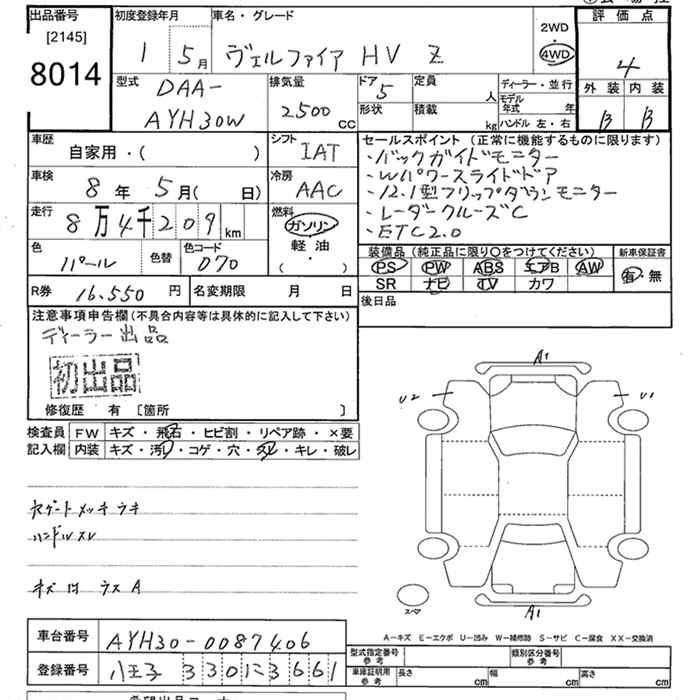 出品番号
[2145]
8014
初度登録年月
1 5月
車名・グレード
ヴェルファイア HV Z
2WD
・
4WD
評価点
4
外装 内装
B B
型式
DAA-
AYH30W
排気量
2500 CC
ドア
5
定員
人
形状
積載
kg
ディーラー・並行
モデル年式 年
ハンドル 左・右
車歴
自家用・( )
シフト
IAT
車検
8年 5月( 日)
冷房
AAC
走行
8万4千209 km
燃料
ガソリン
軽油
( )
色
パール
色替
色コード
070
セールスポイント (正常に機能するものに限ります)
・バックガイドモニター
・Wパワースライドドア
・12.1型フリップダウンモニター
・レーダークルーズC
・ETC2.0
装備品 (純正品に限り○をつけてください)
PS PW ABS エアB AW
SR ナビ TV カワ
新車保証書
有・無
R券 16,550 円
名変期限 月 日
後日品
注意事項申告欄(不具合内容等は具体的に記入して下さい)
ディーラー出品
初出品
修復歴 有 [箇所 ]
検査員記入欄
FW キズ・飛石・ヒビ割・リペア跡・×要
内装 キズ・汚レ・コゲ・穴・スレ・キレ・破レ
ヤゲート メッキ ウキ
ハンドル スレ
キズ 凹 ウス A
A1
U2
U1
スペア
A1
A-キズ E-エクボ U-凹み W-補修跡 S-サビ C-腐食 XX-交換済
車台番号
AYH30-0087406
登録番号
八王子 330 に 3661
型式指定番号
参考
類別区分番号
参考
車庫証明用
参考
長さ cm
幅 cm
高さ cm